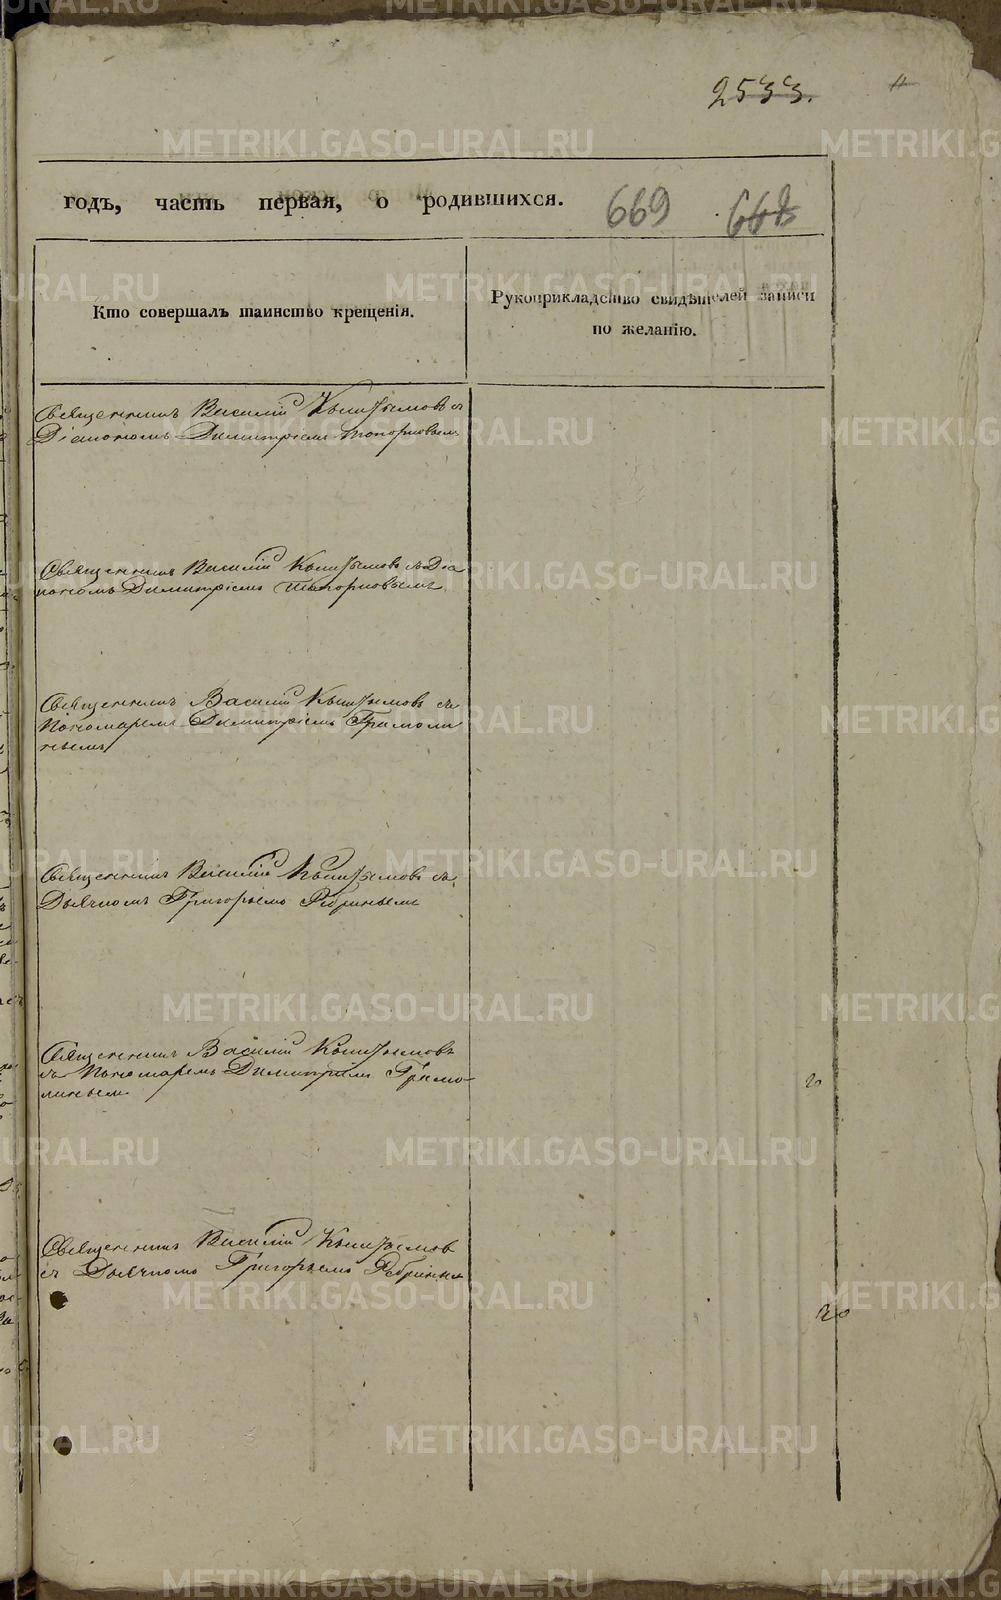 2533.
годъ, часть первая, о родившихся. 669
Кто совершалъ таинство крещенія.
Рукоприкладство свидѣтелей записи
по желанію.
Священникъ Василій Кыштымовъ съ
Діакономъ Димитріемъ Топорковымъ
Священникъ Василій Кыштымовъ съ Діа
кономъ Димитріемъ Топорковымъ
Священникъ Василій Кыштымовъ съ
Пономаремъ Димитріемъ Грамоли
нымъ
Священникъ Василій Кыштымовъ съ
Дьячкомъ Григорьемъ Ребринымъ
Священникъ Василій Кыштымовъ
съ Пономаремъ Димитріемъ Грамо
линымъ
Священникъ Василій Кыштымовъ
съ Дьячкомъ Григорьемъ
METRIKI.GASO-URAL.RU